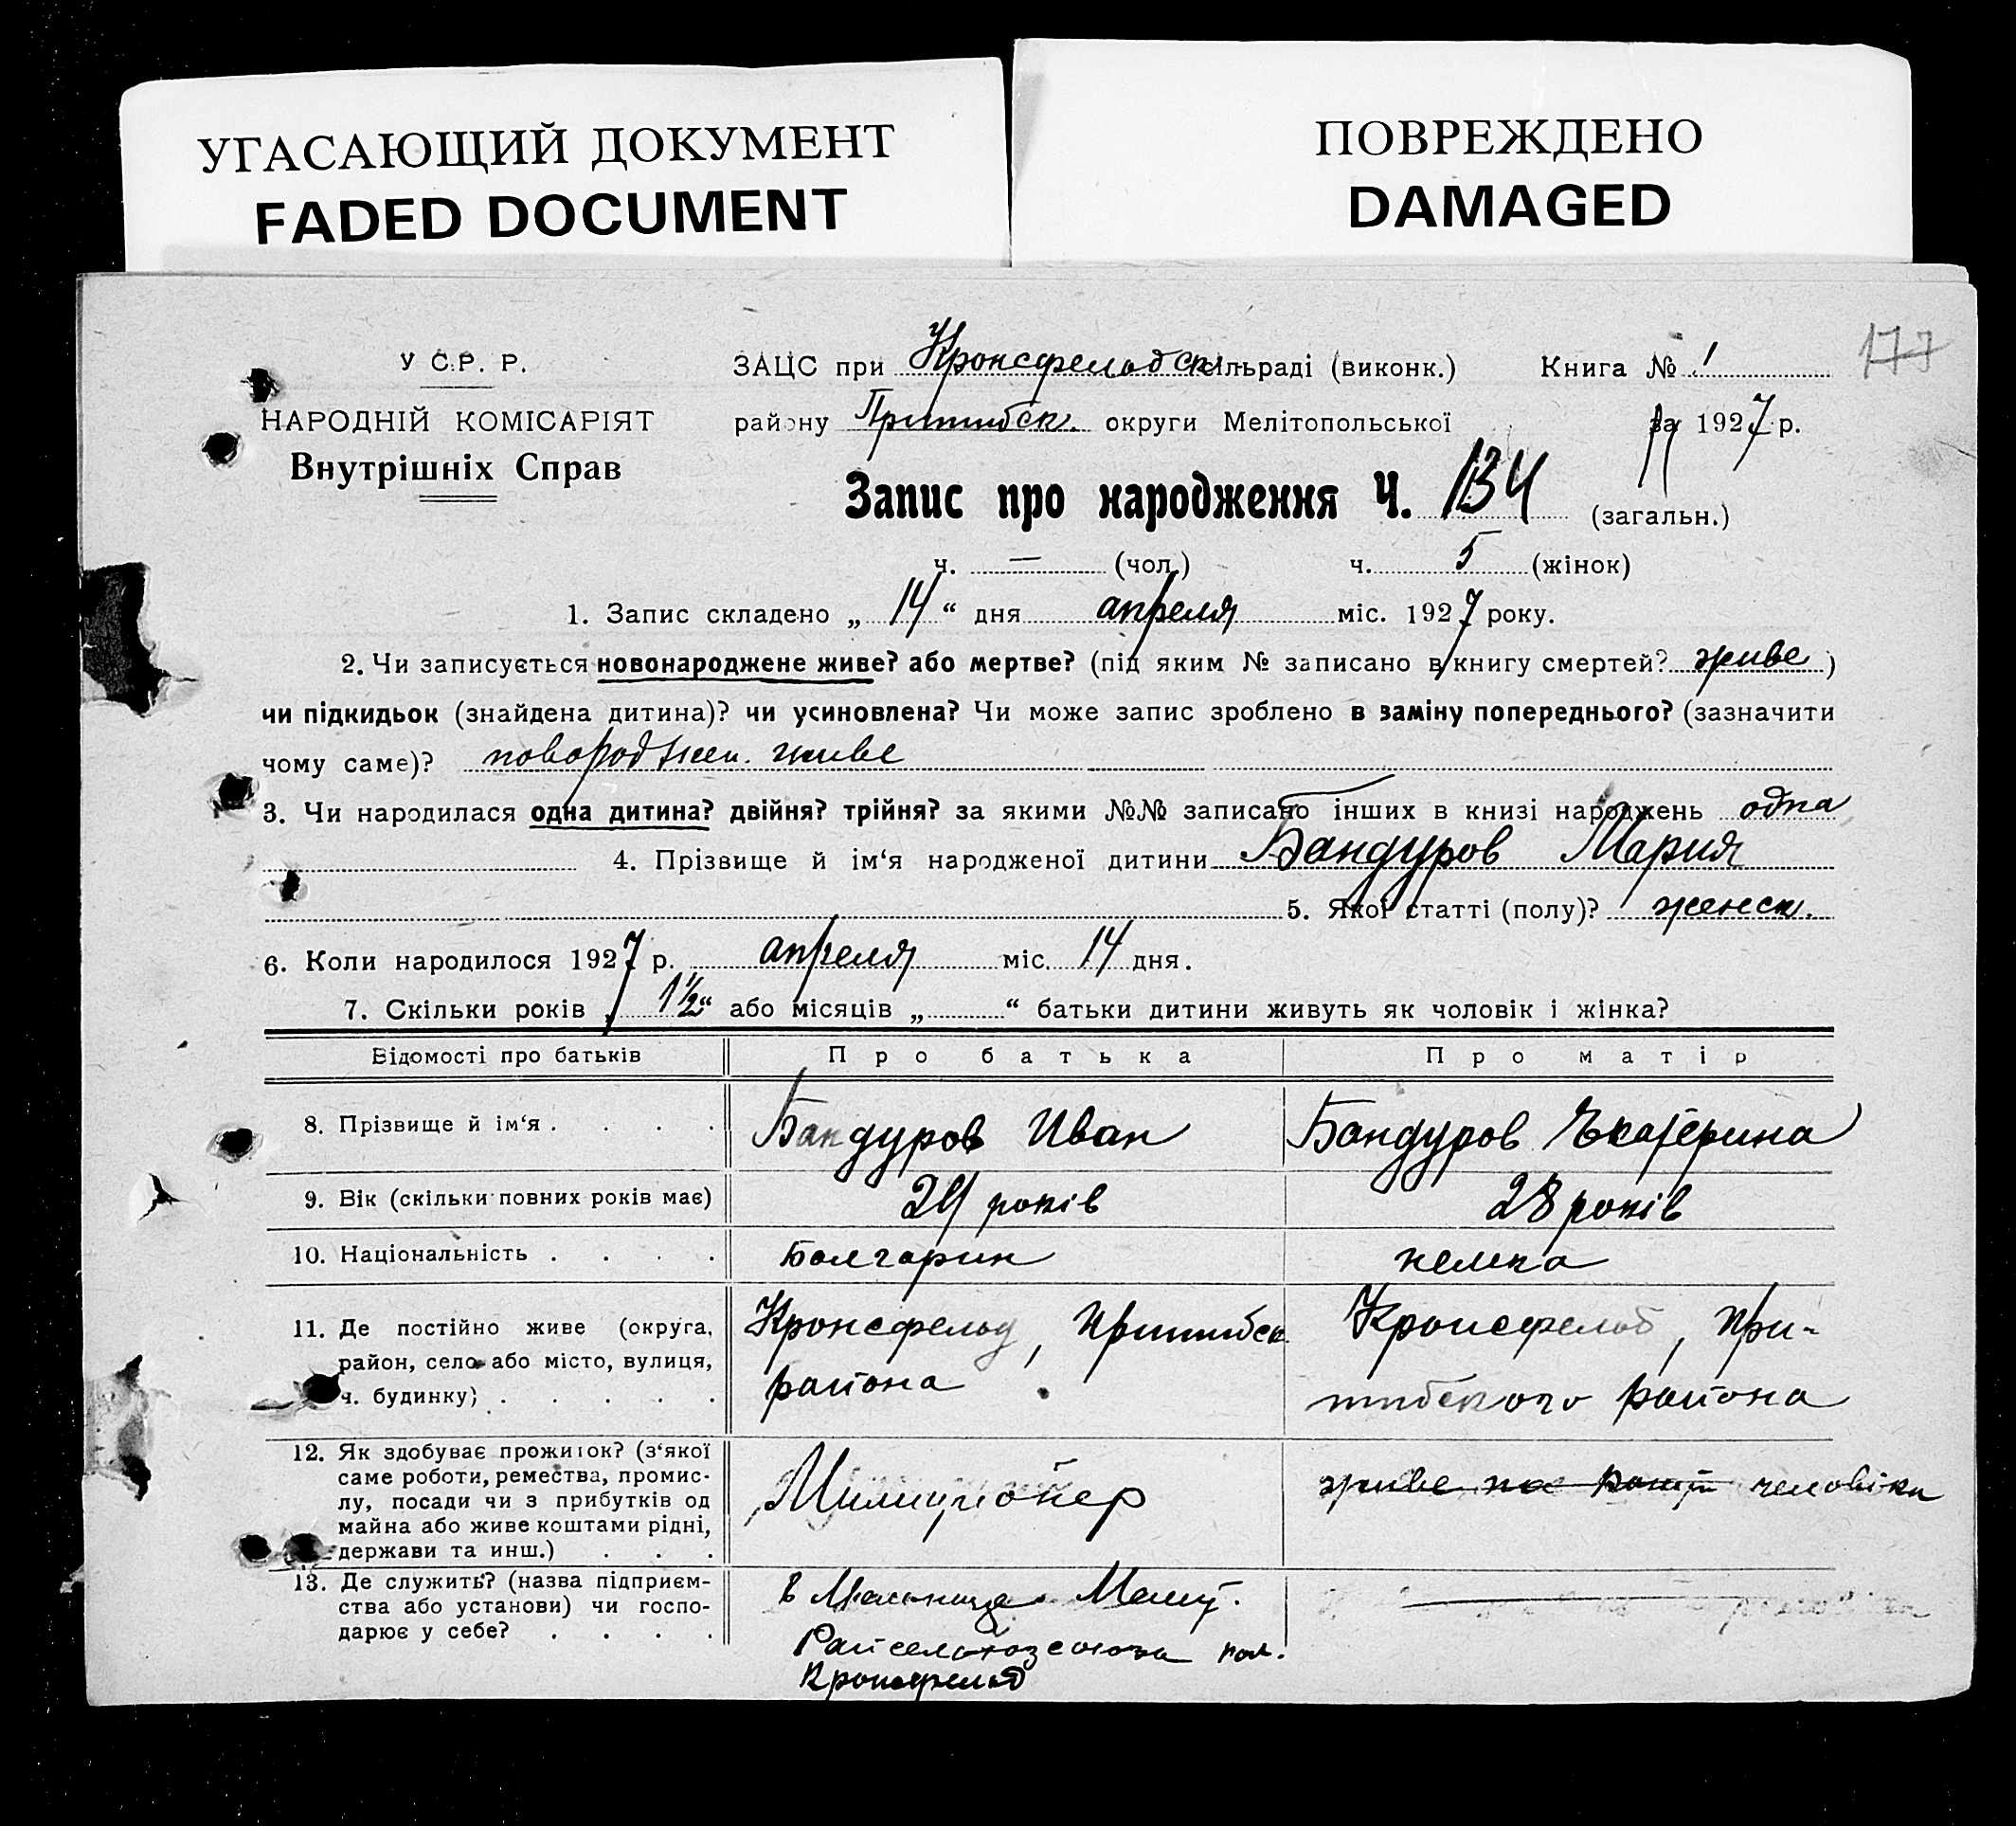 УГАСАЮЩИЙ ДОКУМЕНТ
FADED DOCUMENT
ПОВРЕЖДЕНО
DAMAGED
У С.Р. Р.
НАРОДНІЙ КОМІСАРІЯТ
Внутрішніх Справ
ЗАЦС при Кронсфельдск сільраді (виконк.) Книга № 1
177
району Пришибск. округи Мелітопольської за 1927 р.
Запис про народження Ч. 134 (загальн.)
ч. — (чол.) ч. 5 (жінок)
1. Запис складено „ 14 “ дня апреля міс. 1927 року.
2. Чи записується новонароджене живе? або мертве? (під яким № записано в книгу смертей? живе )
чи підкидьок (знайдена дитина)? чи усиновлена? Чи може запис зроблено в заміну попереднього? (зазначити
чому саме)? новороджен. живе
3. Чи народилася одна дитина? двійня? трійня? за якими №№ записано інших в книзі народжень одна
4. Прізвище й ім‘я народженої дитини Бандуров Мария
5. Якої статті (полу)? женск.
6. Коли народилося 1927 р. апреля міс. 14 дня.
7. Скільки років „ 1½ “ або місяців „ “ батьки дитини живуть як чоловік і жінка?
Відомості про батьків Про батька Про матір
8. Прізвище й ім‘я . . . . Бандуров Иван Бандуров Екатерина
9. Вік (скільки повних років має) років 28 років
10. Національність . . . . Болгарин немка
11. Де постійно живе (округа,
район, село або місто, вулиця,
ч. будинку) . . . . .
Кронсфельд, Пришибск.
района
Кронсфельд, При-
шибского района
12. Як здобуває прожиток? (з‘якої
саме роботи, ремества, промис-
лу, посади чи з прибутків од
майна або живе коштами рідні,
держави та инш.) . . .
Милиционер
живе на кошт человіка
13. Де служить? (назва підприєм-
ства або установи) чи госпо-
дарює у себе? . . . .
в
Райсельхозсоюза кол.
Кронсфельд